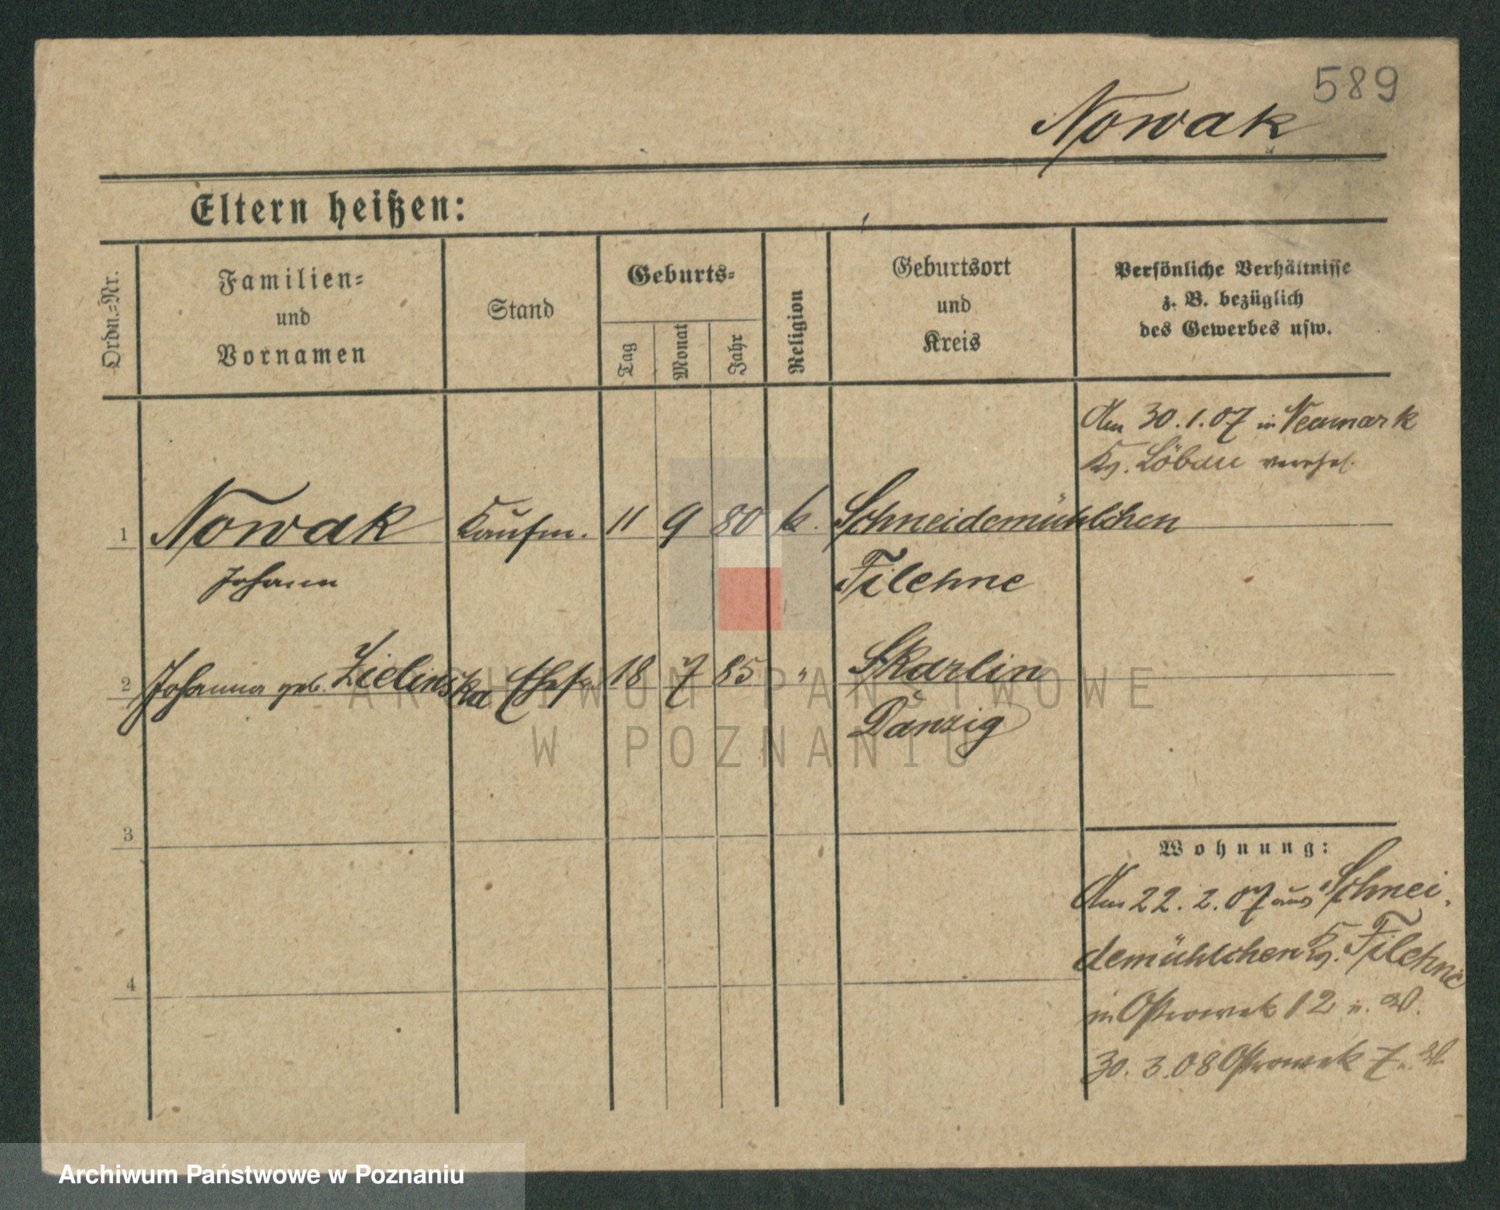 589
Nowak
Eltern heißen:
Ordn.=Nr.
Familien=
und
Vornamen
Stand
Geburts=
Tag
Monat
Jahr
Religion
Geburtsort
und
Kreis
Persönliche Verhältnisse
z. B. bezüglich
des Gewerbes usw.
Am 30.1.07 in Neumark
Kr. Löbau verehel.
1 Nowak Kaufm. 11 9 80 k. Schneidemühlchen
Johann Filehne
2 Johanna geb. Zielinska Ehefr. 18 7 85 " Skarlin
Danzig
3
Wohnung:
Am 22.2.07 aus Schnei-
demühlchen Kr. Filehne
4
in Ostrowek 12 u. W.
30.3.08 Ostrowek 7 u. W.
ARCHIWUM PAŃSTWOWE
W POZNANIU
Archiwum Państwowe w Poznaniu